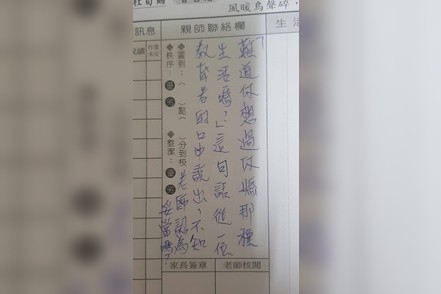 風暖鳥聲碎，
訊息
親師聯絡欄
生活
「難道你想過你媽那種
生活嗎？」這句話從一位
教育者的口中說出，不知
老師認為
妥當嗎？
◆晝到：（　）點（　）分到校
◆秩序：
◆整潔：
家長簽章
老師核閱